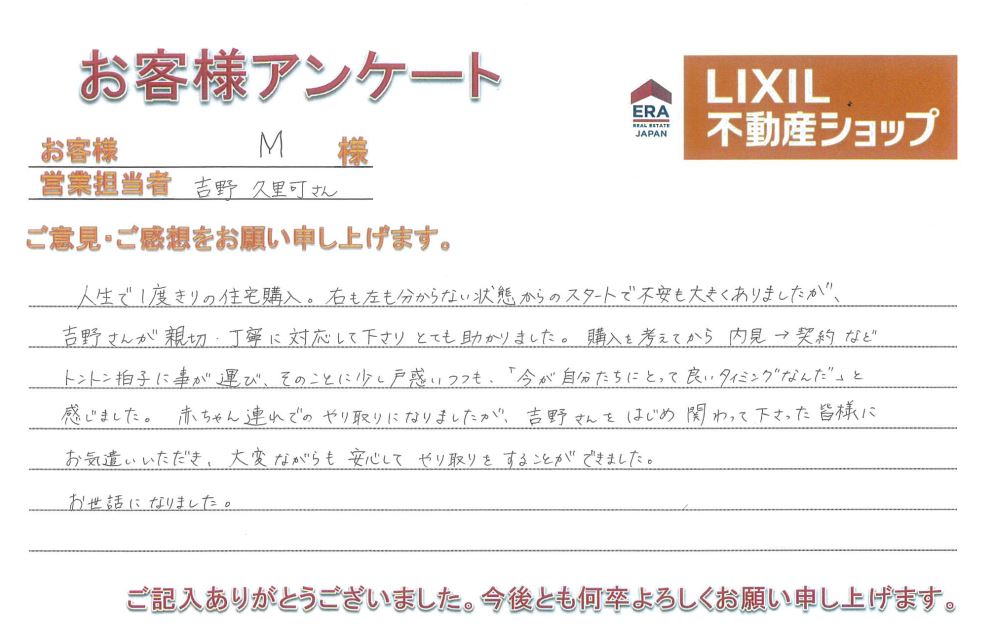 お客様アンケート
ERA
REAL ESTATE
JAPAN
LIXIL
不動産ショップ
お客様 M 様
営業担当者 吉野 久里可さん
ご意見・ご感想をお願い申し上げます。
人生で1度きりの住宅購入。右も左も分からない状態からのスタートで不安も大きくありましたが、
吉野さんが親切・丁寧に対応して下さりとても助かりました。購入を考えてから内見→契約など
トントン拍子に事が運び、そのことに少し戸惑いつつも、「今が自分たちにとって良いタイミングなんだ」と
感じました。赤ちゃん連れでのやり取りになりましたが、吉野さんをはじめ関わって下さった皆様に
お気遣いいただき、大変ながらも安心してやり取りをすることができました。
お世話になりました。
ご記入ありがとうございました。今後とも何卒よろしくお願い申し上げます。